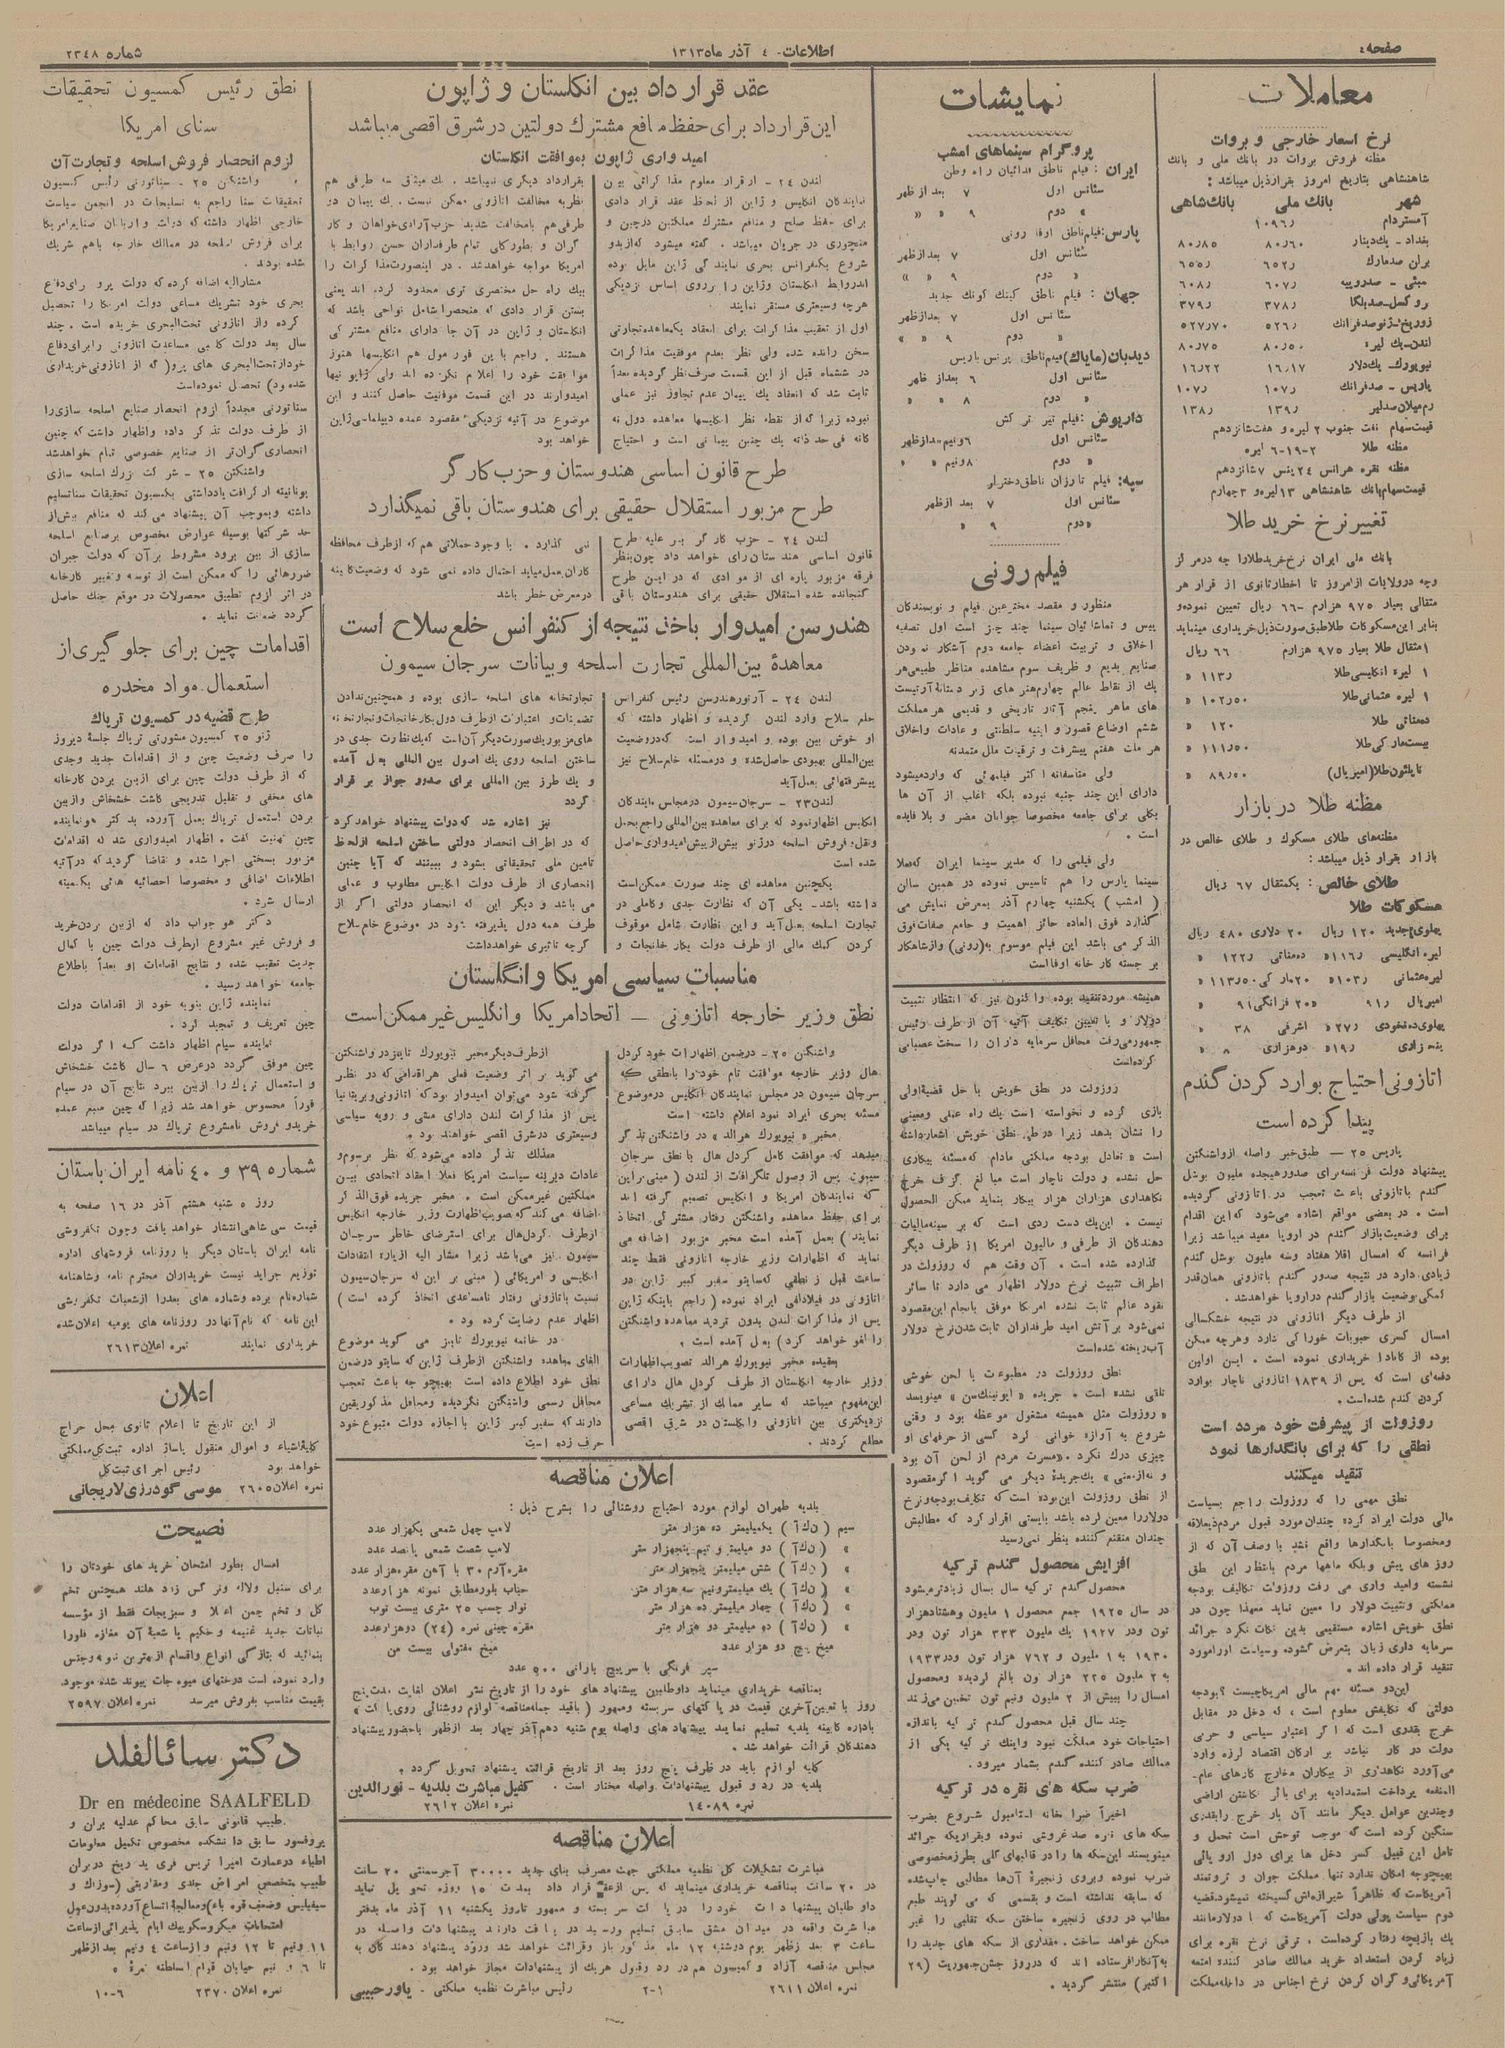 صفحه ٤
اطلاعات - ٤ آذر ماه ١٣١٣
شماره ٢٣٤٨
معاملات
نرخ اسعار خارجی و بروات
مظنه فروش بروات در بانك ملی و بانك
شاهنشاهی بتاریخ امروز بقرار ذیل میباشد :
شهر بانك ملی بانك شاهی
آمستردام ١٠٩٦ر
بغداد - يك دینار ٨٠ر٦٠ ٨٠ر٨٥
برلن صد مارك ٦٥٢ر ٦٥٥ر
بمبئی - صد روپیه ٦٠٧ر ٦٠٨ر
بروکسل - صد بلگا ٣٧٨ر ٣٧٩ر
زوریخ - ژنو صد فرانك ٥٢٦ر ٥٢٧ر٧٠
لندن - يك لیره ٨٠ر٥٠ ٨٠ر٧٥
نیویورك - يك دلار ١٦ر١٧ ١٦ر٢٢
پاریس - صد فرانك ١٠٧ر ١٠٧ر
رم میلان صد لیر ١٣٩ر ١٣٨ر
قیمت سهام نفت جنوب ٢ لیره و هفت شانزدهم
مظنه طلا ٢-١٩-٦ لیره
مظنه نقره هر انس ٢٤ پنس ٧ شانزدهم
قیمت سهام بانك شاهنشاهی ١٣ لیره و ٣ چهارم
تغییر نرخ خرید طلا
بانك ملی ایران نرخ خرید طلا را چه در مرکز
وچه در ولایات از امروز تا اخطار ثانوی از قرار هر
مثقالی بعیار ٩٧٥ هزارم - ٦٦ ریال تعیین نموده و
بنابر این مسکوکات طلا طبق صورت ذیل خریداری مینماید
١ مثقال طلا بعیار ٩٧٥ هزارم ٦٦ ریال
١ لیره انگلیسی طلا ١١٣ر «
١ لیره عثمانی طلا ١٠٢ر٥٠ «
ده مناتی طلا ١٢٠ «
بیست مارکی طلا ١١١ر٥٠ «
ناپلئون طلا (امپریال) ٨٩ر٥٠ «
مظنه طلا در بازار
مظنه های طلای مسکوك و طلای خالص در
بازار بقرار ذیل میباشد :
طلای خالص : یکمثقال ٦٧ ریال
مسکوکات طلا
پهلوی جدید ١٢٠ ریال ٢٠ دلاری ٤٨٠ ریال
لیره انگلیسی ١١٦ر « ده مناتی ١٢٢ر «
لیره عثمانی ١٠٣ر « ٢٠ مارکی ١١٣ر٥٠ «
امپریال ٩١ر « ٢٠ فرانگی ٩١ «
پهلوی ده نخودی ٢٧ر « اشرفی ٣٨ «
پنجهزاری ١٩ر « دوهزاری ٨ «
اتازونی احتیاج بوارد کردن گندم
پیدا کرده است
پاریس ٢٥ - طبق خبر واصله از واشنگتن
پیشنهاد دولت فرانسه برای صدور هیجده ملیون بوشل
گندم باتازونی باعث تعجب در اتازونی گردیده
است . در بعضی مواقع اشاره می‌شود که این اقدام
برای وضعیت بازار گندم در اروپا مفید میباشد زیرا
فرانسه که امسال اقلا هفتاد و سه ملیون بوشل گندم
زیادی دارد در نتیجه صدور گندم باتازونی همان قدر
کمکی بوضعیت بازار گندم در اروپا خواهد شد .
از طرف دیگر اتازونی در نتیجه خشکسالی
امسال کسری حبوبات خوراکی دارد وهرچه ممکن
بوده از کانادا خریداری نموده است . این اولین
دفعه‌ای است که پس از ١٨٣٩ اتازونی ناچار بوارد
کردن گندم شده است .
روزولت از پیشرفت خود مردد است
نطقی را که برای بانگدارها نمود
تنقید میکنند
نطق مهمی را که روزولت راجع بسیاست
مالی دولت ایراد کرده چندان مورد قبول مردم ذیعلاقه
ومخصوصا بانکدارها واقع نشد با وصف آن که از
روز های پیش وبلکه ماهها مردم بانتظار این نطق
نشسته وامید واری می رفت روزولت تکالیف بودجه
مملکتی وتثبیت دولار را معین نماید معهذا چون در
نطق خویش اشاره مستقیمی بدین نکات نکرد جرائد
سرمایه داری زبان بتعرض گشوده وسیاست اورا مورد
تنقید قرار داده اند .
این دو مسئله مهم مالی امریکا چیست ؟ بودجه
دولتی که تکلیفش معلوم است ، که دخل در مقابل
خرج بقدری است که اگر اعتبار سیاسی و حربی
دولت در کار نباشد بر ارکان اقتصاد لرزه وارد
می‌آورد نگاهداری از بیکاران مخارج کارهای عام -
المنفعه پرداخت استمدادیه برای بائر گذاشتن اراضی
وچندین عوامل دیگر مانند آن بار خرج را بقدری
سنگین کرده است که موجب توحش است تحمل و
تامل این قبیل کسر دخل ها برای دول اروپائی
بهیچوجه امکان ندارد تنها مملکت جوان و ثروتمند
آمریکاست که ظاهراً شیرازه‌اش گسیخته نمیشود . قضیه
دوم سیاست پولی دولت آمریکاست که با دولار مانند
يك بازیچه رفتار کرده است . ترقی نرخ نقره برای
زیاد کردن استعداد خرید ممالك صادر کننده امتعه
آمریکائی و گران کردن نرخ اجناس در داخله مملکت
نمایشات
پروگرام سینماهای امشب
ایران : فیلم ناطق فدائیان راه وطن
سئانس اول ٧ بعد از ظهر
« دوم ٩ « «
پارس : فیلم ناطق اوفا رونی
سئانس اول ٧ بعد از ظهر
« دوم ٩ « «
جهان : فیلم ناطق کینك کونك جدید
سئانس اول ٧ بعد از ظهر
« دوم ٩ « «
دیدبان (مایاك) فیلم ناطق پرنس پاریس
سئانس اول ٦ بعد از ظهر
« دوم ٨ « «
داریوش : فیلم تیر ترکش
سئانس اول ٦ ونیم بعد از ظهر
« دوم ٨ ونیم « «
سپه : فیلم تارزان ناطق دختر لر
سئانس اول ٧ بعد از ظهر
« دوم ٩ «
فیلم رونی
منظور و مقصد مخترعین فیلم و نویسندگان
پیس و تماشائیان سینما چند چیز است اول تصفیه
اخلاق و تربیت اعضاء جامعه دوم آشکار نمودن
صنایع بدیع و ظریف سوم مشاهده مناظر طبیعی هر
يك از نقاط عالم چهارم هنر های زبر دستانه آرتیست
های ماهر پنجم آثار تاریخی و قدیمی هر مملکت
ششم اوضاع قصور و ابنیه سلطنتی و عادات و اخلاق
هر ملت هفتم پیشرفت و ترقیات ملل متمدنه
ولی متأسفانه اکثر فیلمهائی که وارد میشود
دارای این چند جنبه نبوده بلکه اغلب از آن ها
بکلی برای جامعه مخصوصا جوانان مضر و بلا فایده
است .
ولی فیلمی را که مدیر سینما ایران که فعلا
سینما پارس را هم تاسیس نموده در همین سالن
( امشب ) یکشنبه چهارم آذر بمعرض نمایش می
گذارد فوق العاده حائز اهمیت و جامع صفات فوق
الذکر می باشد این فیلم موسوم به (رونی) و از شاهکار
برجسته کار خانه اوفا است
همیشه مورد تنقید بوده و اکنون نیز که انتظار تثبیت
دولار و یا تعیین تکالیف آتیه آن از طرف رئیس
جمهور می‌رفت محافل سرمایه داران را سخت عصبانی
کرده است
روزولت در نطق خویش با حل قضیه اولی
بازی کرده و نخواسته است يك راه عملی ومعینی
را نشان بدهد زیرا در طی نطق خویش اشعار داشته
است « تعادل بودجه مملکتی مادام که مسئله بیکاری
حل نشده و دولت ناچار است مبالغ گزاف خرج
نگاهداری هزاران هزار بیکار بنماید ممکن الحصول
نیست . این يك دست ردی است که بر سینه مالیات
دهندگان از طرفی و مالیون امریکا از طرف دیگر
گذارده شده است . آن وقت هم که روزولت در
اطراف تثبیت نرخ دولار اظهار می دارد تا سائر
نقود عالم ثابت نشده امریکا موفق بانجام این مقصود
نمی‌شود بر آتش امید طرفداران ثابت شدن نرخ دولار
آب ریخته شده است
نطق روزولت در مطبوعات با لحن خوشی
تلقی نشده است . جریده « ایونینگ سن » مینویسد
« روزولت مثل همیشه مشغول موعظه بود و وقتی
شروع به آوازه خوانی کرد کسی از حرفهای او
چیزی درك نکرد . « مسرت مردم از لحن آن بود
و نه از معنی » يك جریده دیگر می گوید اگر مقصود
از نطق روزولت این بوده است که تکلیف بودجه و نرخ
دولار را معین کرده باشد بایستی اقرار کرد که مطالبش
چندان متقنع کننده بنظر نمی‌رسید
افزایش محصول گندم ترکیه
محصول گندم ترکیه سال بسال زیادتر میشود
در سال ١٩٢٥ جمع محصول ١ ملیون وهشتاد هزار
تون ودر ١٩٢٧ يك ملیون ٣٣٣ هزار تون ودر
١٩٣٠ به ١ ملیون و ٧٦٢ هزار تون ودر ١٩٣٣
به ٢ ملیون ٢٢٥ هزار تون بالغ گردیده ومحصول
امسال را بیش از ٢ ملیون ونیم تون تخمین می‌زنند
چند سال قبل محصول گندم ترکیه باندازه
احتیاجات خود مملکت نبود واینك ترکیه یکی از
ممالك صادر کننده گندم بشمار میرود .
ضرب سکه های نقره در ترکیه
اخیراً ضرابخانه استامبول شروع بضرب
سکه های نقره صد غروشی نموده وبقراریکه جرائد
مینویسند این سکه ها را در قالبهای کلی بطرز مخصوصی
ضرب نموده وبروی زنجیره آن‌ها مطالبی چاپ شده
که سابقه نداشته است و بقسمی که می گویند طبع
مطالب در روی زنجیره ساختن سکه تقلبی را غیر
ممکن خواهد ساخت . مقداری از سکه های جدید را
به آنکارا فرستاده اند که در روز جشن جمهوریت (٢٩
اکتبر) منتشر گردید .
عقد قرار داد بین انگلستان و ژاپون
این قرارداد برای حفظ منافع مشترك دولتین در شرق اقصی میباشد
امیدواری ژاپون بموافقت انگلستان
لندن ٢٤ - از قرار معلوم مذاکراتی بین
نمایندگان انگلیس و ژاپن از لحاظ عقد قرار دادی
برای حفظ صلح و منافع مشترك مملکتین در چین و
منچوری در جریان میباشد . گفته میشود که از بدو
شروع بکنفرانس بحری نمایندگی ژاپن مایل بوده
اند روابط انگلستان وژاپن را بر روی اساس نزدیکی
هرچه وسیعتری مستقر نمایند
اول از تعقیب مذاکرات برای انعقاد يك معاهده تجارتی
سخن رانده شده ولی نظر بعدم موفقیت مذاکرات
در ششماه قبل از این قسمت صرف نظر گردیده بعداً
ثابت شد که انعقاد يك پیمان عدم تجاوز نیز عملی
نبوده زیرا که از نقطه نظر انگلیسها معاهده دول نه
گانه فی حد ذاته يك چنین پیمانی است و احتیاج
بقرارداد دیگری نمیباشد . يك میثاق سه طرفی هم
نظر به مخالفت اتازونی ممکن نیست . يك پیمان دو
طرفی هم بامخالفت شدید حزب آزادیخواهان و کار
گران و بطور کلی تمام طرفداران حسن روابط با
امریکا مواجه خواهد شد . در اینصورت مذاکرات را
بيك راه حل مختصر تری محدود کرده اند یعنی
بستن قرار دادی که منحصراً شامل نواحی باشد که
انگلستان و ژاپن در آن جا دارای منافع مشترکی
هستند . راجع باین فورمول هم انگلیسها هنوز
موافقت خود را اعلام نکرده اند ولی ژاپونیها
امیدوارند در این قسمت موفقیت حاصل کنند و این
موضوع در آتیه نزدیکی مقصود عمده دیپلماسی ژاپن
خواهد بود
طرح قانون اساسی هندوستان و حزب کارگر
طرح مزبور استقلال حقیقی برای هندوستان باقی نمیگذارد
لندن ٢٤ - حزب کارگر بر علیه طرح
قانون اساسی هندوستان رای خواهد داد چون بنظر
فرقه مزبور پاره ای از موادی که در این طرح
گنجانده شده استقلال حقیقی برای هندوستان باقی
نمی گذارد . با وجود حملاتی هم که از طرف محافظه
کاران بعمل میاید احتمال داده نمی شود که وضعیت کابینه
در معرض خطر باشد
هندرسن امیدوار باخذ نتیجه از کنفرانس خلع سلاح است
معاهدهٔ بین‌المللی تجارت اسلحه و بیانات سرجان سیمون
لندن ٢٤ - آرتور هندرسن رئیس کنفرانس
خلع سلاح وارد لندن گردیده و اظهار داشته که
او خوش بین بوده و امیدوار است که در وضعیت
بین‌المللی بهبودی حاصل شده و در مسئله خلع سلاح نیز
پیشرفتهائی بعمل آید
لندن ٢٣ - سرجان سیمون در مجلس نمایندگان
انگلیس اظهار نمود که برای معاهده بین‌المللی راجع بحمل
ونقل و فروش اسلحه در ژنو بیش از پیش امیدواری حاصل
شده است
یکچنین معاهده ای چند صورت ممکن است
داشته باشد - یکی آن که نظارت جدی و کاملی در
تجارت اسلحه بعمل آید و این نظارت شامل موقوف
کردن کمك مالی از طرف دولت بکار خانجات و
تجارتخانه های اسلحه سازی بوده و همچنین ندادن
تضمینات و اعتبارات از طرف دول بکارخانجات و تجارتخانه
های مزبور يك صورت دیگر آن است که يك نظارت جدی در
ساختن اسلحه روی يك اصول بین المللی بعمل آمده
و يك طرز بین المللی برای صدور جواز بر قرار
گردد
نیز اشاره شد که دولت پیشنهاد خواهد کرد
که در اطراف انحصار دولتی ساختن اسلحه از لحاظ
تامین ملی تحقیقاتی بشود و ببینند که آیا چنین
انحصاری از طرف دولت انگلیس مطلوب و عملی
می باشد و دیگر این که انحصار دولتی اگر از
طرف همه دول پذیرفته شود در موضوع خلع سلاح
گرچه تاثیری خواهد داشت
مناسبات سیاسی امریکا و انگلستان
نطق وزیر خارجه اتازونی - اتحاد امریکا و انگلیس غیر ممکن است
واشنگتن ٢٥ - در ضمن اظهارات خود کردل
هال وزیر خارجه موافقت تام خود را با نطقی که
سرجان سیمون در مجلس نمایندگان انگلیس در موضوع
مسئله بحری ایراد نمود اعلام داشته است
مخبر « نیویورك هرالد » در واشنگتن تذکر
میدهد که موافقت کامل کردل هال با نطق سرجان
سیمون پس از وصول تلگرافات از لندن ( مبنی بر این
که نمایندگان امریکا و انگلیس تصمیم گرفته اند
برای حفظ معاهده واشنگتن رفتار مشترکی اتخاذ
نمایند ) بعمل آمده است مخبر مزبور اضافه می
نماید که اظهارات وزیر خارجه اتازونی فقط چند
ساعت قبل از نطقی که سایتو سفیر کبیر ژاپن در
اتازونی در فیلادلفی ایراد نموده ( راجع باینکه ژاپن
پس از مذاکرات لندن بدون تردید معاهده واشنگتن
را لغو خواهد کرد ) بعمل آمده است .
بعقیده مخبر نیویورك هرالد تصویب اظهارات
وزیر خارجه انگلستان از طرف کردل هال دارای
این مفهوم میباشد که سایر ممالك از تشریك مساعی
نزدیکتری بین اتازونی وانگلستان در شرق اقصی
مطلع گردند .
از طرف دیگر مخبر نیویورك تایمز در واشنگتن
می گوید بر اثر وضعیت فعلی هر اقدامی که در نظر
گرفته شود می‌توان امیدوار بود که اتازونی وبریتانیا
پس از مذاکرات لندن دارای مشی و رویه سیاسی
وسیعتری در شرق اقصی خواهند بود .
معذلك تذکر داده می‌شود که نظر برسوم و
عادات دیرینه سیاست امریکا فعلا انعقاد اتحادی بین
مملکتین غیر ممکن است . مخبر جریده فوق الذکر
اضافه می‌کند که تصویب اظهارات وزیر خارجه انگلیس
از طرف کردل هال برای استرضای خاطر سرجان
سیمون نیز می‌باشد زیرا مشار الیه از پاره انتقادات
انگلیسی و امریکائی ( مبنی بر این که سرجان سیمون
نسبت باتازونی رفتار نامساعدی اتخاذ کرده است )
اظهار عدم رضایت کرده بود .
در خاتمه نیویورك تایمز می گوید موضوع
الغای معاهده واشنگتن از طرف ژاپن که سایتو در ضمن
نطق خود اطلاع داده است بهیچوجه باعث تعجب
محافل رسمی واشنگتن نگردیده ومحافل مذکور یقین
دارند که سفیر کبیر ژاپن با اجازه دولت متبوع خود
حرف زده است
اعلان مناقصه
بلدیه طهران لوازم مورد احتیاج روشنائی را بشرح ذیل :
سیم ( ن ك آ ) یکمیلیمتر ده هزار متر لامپ چهل شمعی یکهزار عدد
« ( ن ك آ ) دو میلیمتر و نیم پنجهزار متر لامپ شصت شمعی پانصد عدد
« ( ن ك آ ) شش میلیمتر پنجهزار متر مقره آرم ٣٠ با آهن مقره هزار عدد
« ( ن ك آ ) يك میلیمتر و نیم سه هزار متر حباب بلور مطابق نمونه هزار عدد
« ( ن ك آ ) چهار میلیمتر ده هزار متر نوار چسب ٢٥ متری بیست توپ
« ( ن ك آ ) دو میلیمتر دو هزار متر مقره چینی نمره (٢٤) دو هزار عدد
میخ پیچ دو هزار عدد میخ مفتولی بیست من
سپر فرنگی با سرپیچ بارانی ٥٠٠ عدد
بمناقصه خریداری مینماید داوطلبین پیشنهاد های خود را از تاریخ نشر اعلان لغایت مدت پنج
روز با تعیین آخرین قیمت در پاکتهای سربسته و ممهور ( باقید جمله مناقصه لوازم روشنائی روی پاکت )
باداره کابینه بلدیه تسلیم نمایند پیشنهاد های واصله یوم شنبه دهم آذر چهار بعد از ظهر با حضور پیشنهاد
دهندگان قرائت خواهد شد .
کلیه لوازم باید در ظرف پنج روز بعد از تاریخ قرائت پیشنهاد تحویل گردد .
بلدیه در رد و قبول پیشنهادات واصله مختار است . کفیل مباشرت بلدیه - نورالدین
نمره ١٤٠٨٩ نمره اعلان ٢٦١٢
اعلان مناقصه
مباشرت تشکیلات کل نظمیه مملکتی جهت مصرف بنای جدید ٣٠٠٠٠ آجر سمنتی ٢٠ سانت
در ٢٠ سانت بمناقصه خریداری مینماید که پس از عقد قرار داد بمدت ١٥ روزه تحویل نماید
داوطلبان پیشنهادات خود را در پاکت سربسته و ممهور تا روز یکشنبه ١١ آذر ماه بدفتر
مباشرت واقعه در میدان مشق سابق تسلیم ورسید دریافت دارند پیشنهادات واصله در
ساعت ٣ بعد از ظهر یوم دوشنبه ١٢ ماه مذکور باز وقرائت خواهد شد ورود پیشنهاد دهندگان به
مجلس مناقصه آزاد و کمیسیون هم در رد وقبول هر يك از پیشنهادات مجاز خواهد بود .
نمره اعلان ٢٦١١ ٢-١ رئیس مباشرت نظمیه مملکتی - یاور حبیبی
نطق رئیس کمسیون تحقیقات
سنای امریکا
لزوم انحصار فروش اسلحه و تجارت آن
واشنگتن ٢٥ - سناتورنی رئیس کمسیون
تحقیقات سنا راجع به تسلیحات در انجمن سیاست
خارجی اظهار داشته که دولت و اربابان صنایع امریکا
برای فروش اسلحه در ممالك خارجه باهم شريك
شده بودند .
مشارالیه اضافه کرده که دولت پرو برای دفاع
بحری خود تشریك مساعی دولت امریکا را تحصیل
کرده واز اتازونی تحت‌البحری خریده است . چند
سال بعد دولت کلمبی مساعدت اتازونی را برای دفاع
خود از تحت‌البحری های پرو ( که از اتازونی خریداری
شده بود ) تحصیل نموده است
سناتورنی مجدداً لزوم انحصار صنایع اسلحه سازی را
از طرف دولت تذکر داده واظهار داشت که چنین
انحصاری گران‌تر از صنایع خصوصی تمام خواهد شد
واشنگتن ٢٥ - شرکت بزرك اسلحه سازی
یونایتد ارکرافت یادداشتی بکمسیون تحقیقات سنا تسلیم
داشته وبموجب آن پیشنهاد می کند که منافع بیش از
حد شرکتها بوسیله عوارض مخصوص بر صنایع اسلحه
سازی از بین برود مشروط بر آن که دولت جبران
ضررهائی را که ممکن است از توسعه و تغییر کارخانه
در اثر لزوم تطبیق محصولات در موقع جنك حاصل
گردد ضمانت نماید .
اقدامات چین برای جلوگیری از
استعمال مواد مخدره
طرح قضیه در کمسیون تریاك
ژنو ٢٥ کمسیون مشورتی تریاك جلسهٔ دیروز
را صرف وضعیت چین و از اقدامات جدید وجدی
که از طرف دولت چین برای از بین بردن کارخانه
های مخفی و تقلیل تدریجی کاشت خشخاش و از بین
بردن استعمال تریاك بعمل آورده به دکتر هو نماینده
چین تهنیت گفت . اظهار امیدواری شد که اقدامات
مزبور بسختی اجرا شده و تقاضا گردید که در آتیه
اطلاعات اضافی و مخصوصا احصائیه هائی بکمیته
ارسال شود .
دکتر هو جواب داد که از بین بردن خرید
و فروش غیر مشروع از طرف دولت چین با کمال
جدیت تعقیب شده و نتایج اقدامات او بعداً باطلاع
جامعه خواهد رسید .
نماینده ژاپن بنوبه خود از اقدامات دولت
چین تعریف و تمجید کرد .
نماینده سیام اظهار داشت که اگر دولت
چین موفق گردد در عرض ٦ سال کاشت خشخاش
و استعمال تریاك را از بین ببرد نتایج آن در سیام
فوراً محسوس خواهد شد زیرا که چین منبع عمده
خرید و فروش نامشروع تریاك در سیام میباشد
شماره ٣٩ و ٤٠ نامه ایران باستان
روز ٥ شنبه هشتم آذر در ١٦ صفحه به
قیمت سی شاهی انتشار خواهد یافت وچون تکفروشی
نامه ایران باستان دیگر با روزنامه فروشهای اداره
توزیع جراید نیست خریداران محترم نامه وشاهنامه
شماره‌نام برده وشماره های بعد را از شعبات تکفروشی
این نامه که نام آنها در روزنامه های یومیه اعلان شده
خریداری نمایند نمره اعلان ٢٦١٣
اعلان
از این تاریخ تا اعلام ثانوی محل حراج
کلیه اشیاء و اموال منقول پاساژ اداره ثبت کل مملکتی
خواهد بود رئیس اجرای ثبت کل
نمره اعلان ٢٦٠٥ موسی گودرزی لاریجانی
نصیحت
امسال بطور امتحان خرید های خودتان را
برای سنبل ولاله ونرگس زرد هلند همچنین تخم
گل و تخم چمن اعلا و سبزیجات فقط از مؤسسه
نباتات جدید غنیمه و حکیم یا شعبهٔ آن مغازه فلورا
بنمائید که بتازگی انواع واقسام از بهترین نمونه و جنس
وارد نموده است درختهای میوه جات پیوند شده موجود
بقیمت مناسب بفروش میرسد نمره اعلان ٢٥٩٧
دکتر سائالفلد
Dr en médecine SAALFELD
طبیب قانونی سابق محاکم عدلیه برلن و
پروفسور سابق دانشکده مخصوص تکمیل معلومات
اطباء در عمارت امپراتریس فریدریخ در برلن
طبیب متخصص امراض جلدی ومقاربتی (سوزاك و
سیفیلیس وضعف قوه باء) ومعالجهٔ اتساع آورده بدون عمل
امتحانات میکروسکوپيك ایام پذیرائی از ساعت
١١ ونیم تا ١٢ ونیم و از ساعت ٤ ونیم بعد از ظهر
تا ٦ و نیم خیابان قوام السلطنه نمرهٔ ٥
نمره اعلان ٢٣٧٠ ١٠-٦